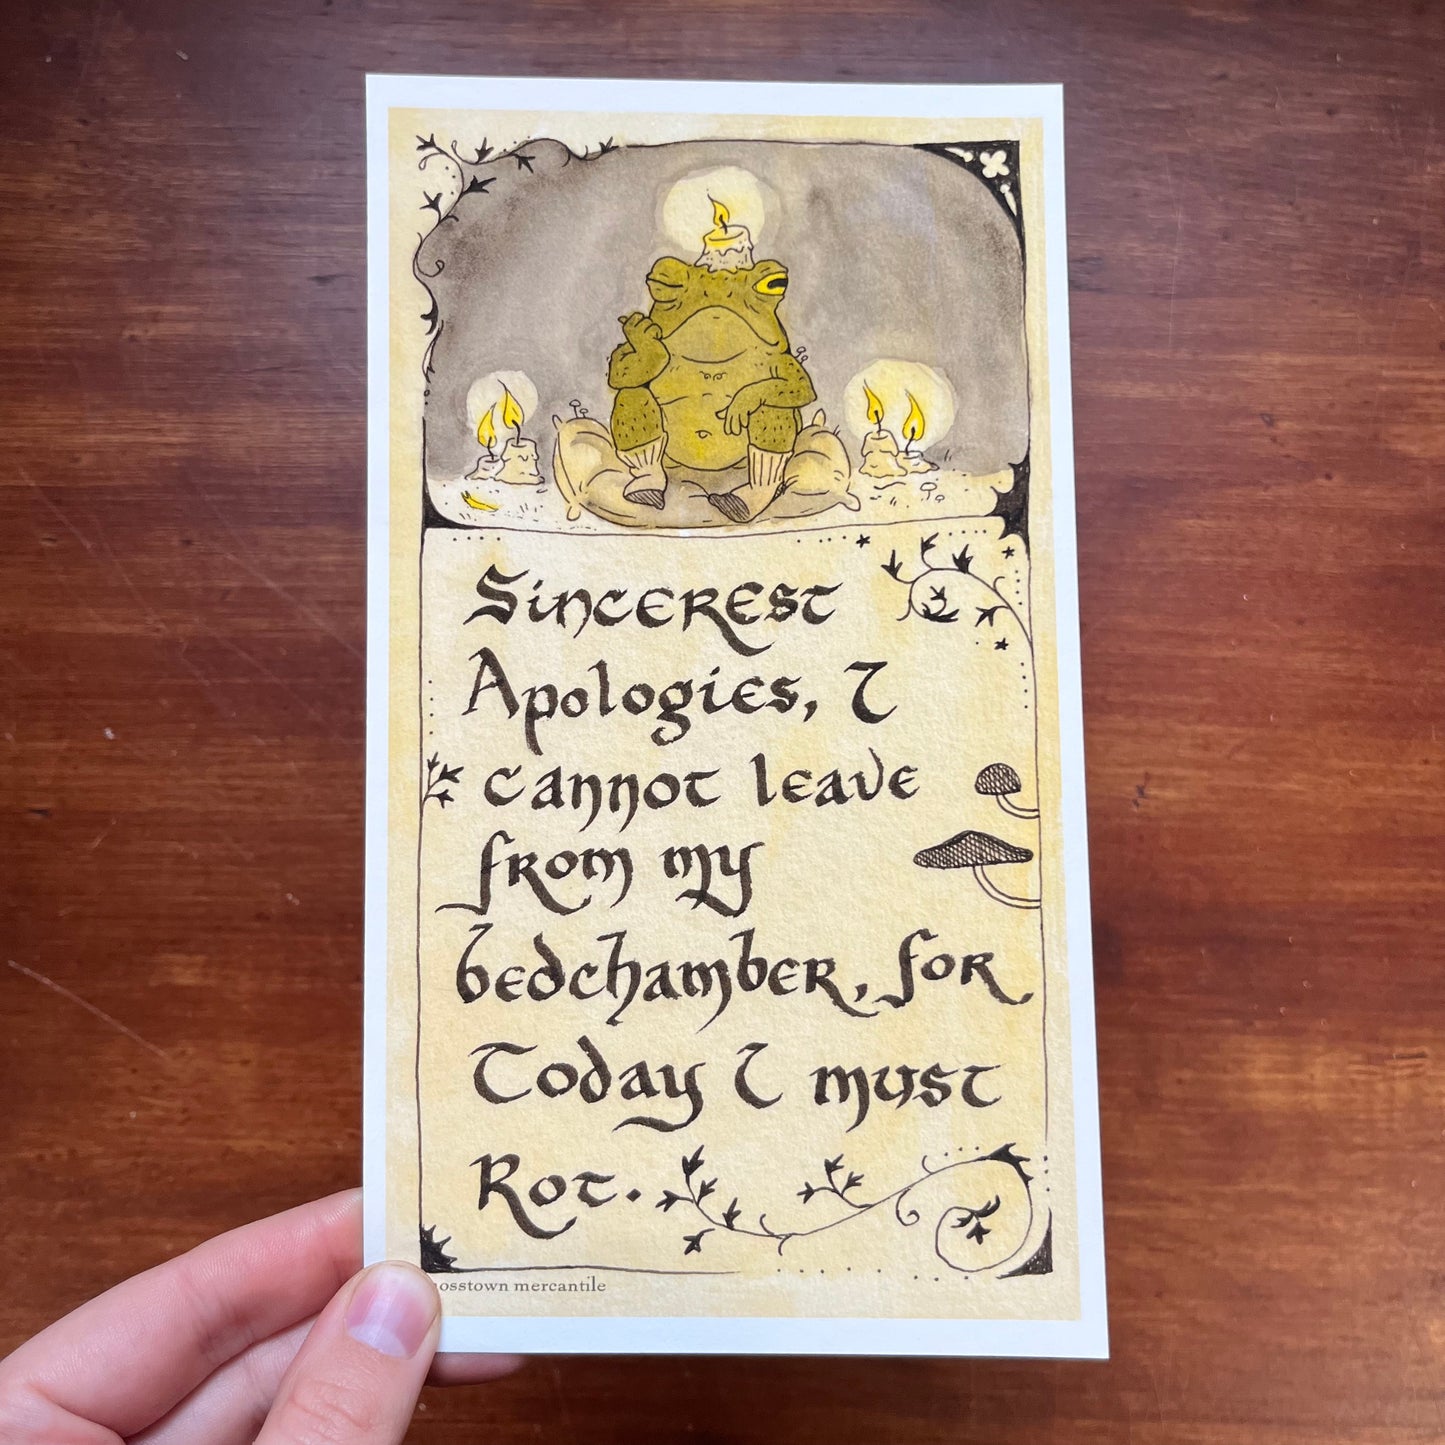 Sincerest
Apologies, I
cannot leave
from my
bedchamber, for
Today I must
Rot.
mercantile